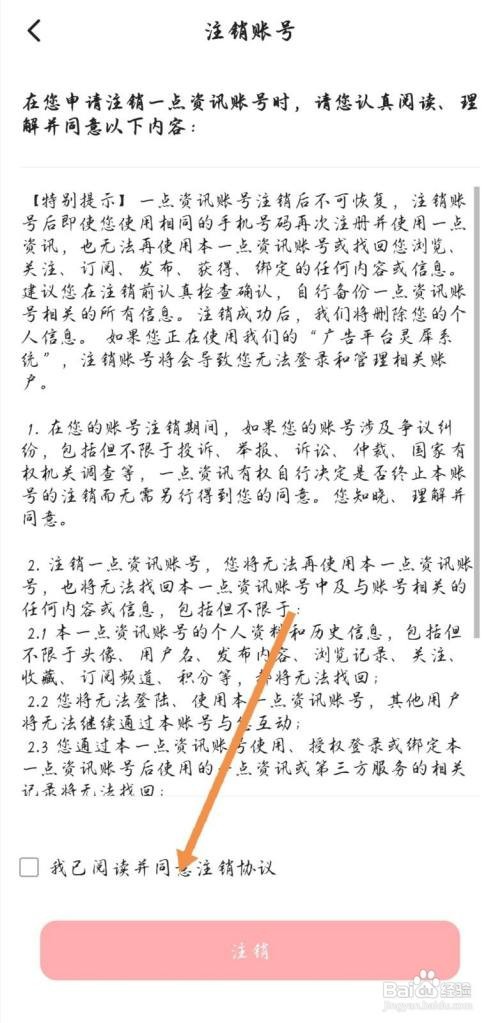 注销账号
在您申请注销一点资讯账号时，请您认真阅读、理
解并同意以下内容：
【特别提示】一点资讯账号注销后不可恢复，注销账
号后即使您使用相同的手机号码再次注册并使用一点
资讯，也无法再使用本一点资讯账号或找回您浏览、
关注、订阅、发布、获得、绑定的任何内容或信息。
建议您在注销前认真检查确认，自行备份一点资讯账
号相关的所有信息。注销成功后，我们将删除您的个
人信息。 如果您正在使用我们的“广告平台灵犀系
统”，注销账号将会导致您无法登录和管理相关账
户。
1. 在您的账号注销期间，如果您的账号涉及争议纠
纷，包括但不限于投诉、举报、诉讼、仲裁、国家有
权机关调查等，一点资讯有权自行决定是否终止本账
号的注销而无需另行得到您的同意。您知晓、理解并
同意。
2. 注销一点资讯账号，您将无法再使用本一点资讯账
号，也将无法找回本一点资讯账号中及与账号相关的
任何内容或信息，包括但不限于：
2.1 本一点资讯账号的个人资料和历史信息，包括但
不限于头像、用户名、发布内容、浏览记录、关注、
收藏、订阅频道、积分等，都将无法找回；
2.2 您将无法登陆、使用本一点资讯账号，其他用户
将无法继续通过本账号与您互动；
2.3 您通过本一点资讯账号使用、授权登录或绑定本
一点资讯账号后使用的一点资讯或第三方服务的相关
记录将无法找回；
我已阅读并同意注销协议
注销
Baidu经验
jingyan.baidu.com